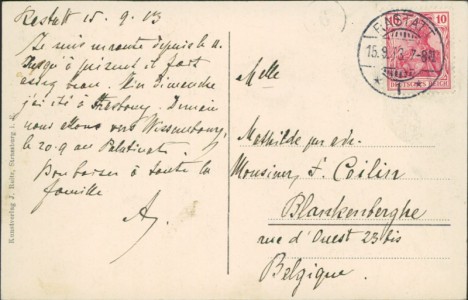 Rastatt 15. 9. 13
Je suis en route depuis le 11.
Jusqu'à présent il fait
cinq beau. Un dimanche
j'ai été à Strasbourg. Demain
nous allons vers Wissembourg,
le 20.9 au Palatinat.
Bon baiser à toute la
famille
A.
Kunstverlag J. Bolte, Strassburg i. E.
RASTATT
15.9.13. 7-8
10
DEUTSCHES REICH
Melle
Mathilde
Monsieur, F. Coilin
Blankenberghe
rue d'Ouest 23 bis
Belgique.